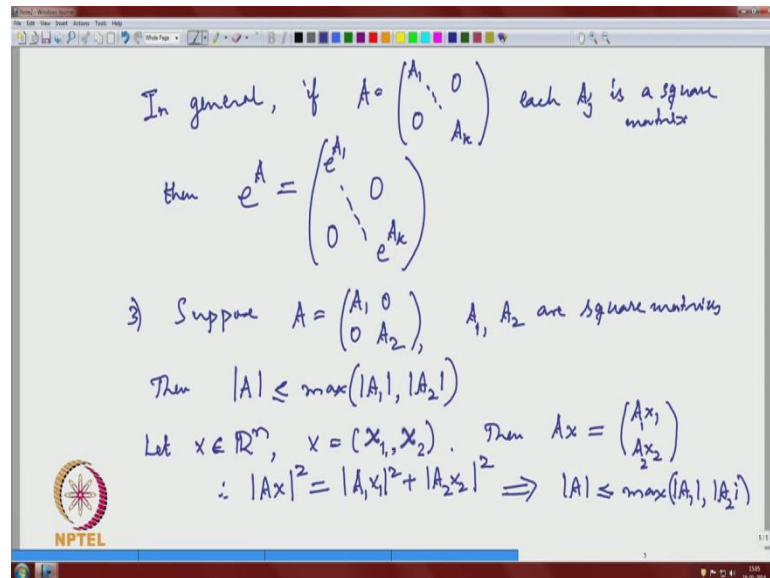 Note2 - Windows Journal
File Edit View Insert Actions Tools Help
Whole Page
In general, if A = (A₁ 0 ⋱ 0 Aₖ) each Aⱼ is a square matrix
then e^A = (e^A₁ 0 ⋱ 0 e^Aₖ)
3) Suppose A = (A₁ 0 0 A₂), A₁, A₂ are square matrices
Then |A| ≤ max(|A₁|, |A₂|)
Let x ∈ ℝⁿ, x = (x₁, x₂). Then Ax = (A₁x₁ A₂x₂)
∴ |Ax|² = |A₁x₁|² + |A₂x₂|² ⟹ |A| ≤ max(|A₁|, |A₂|)
NPTEL
5
5/5
15:05